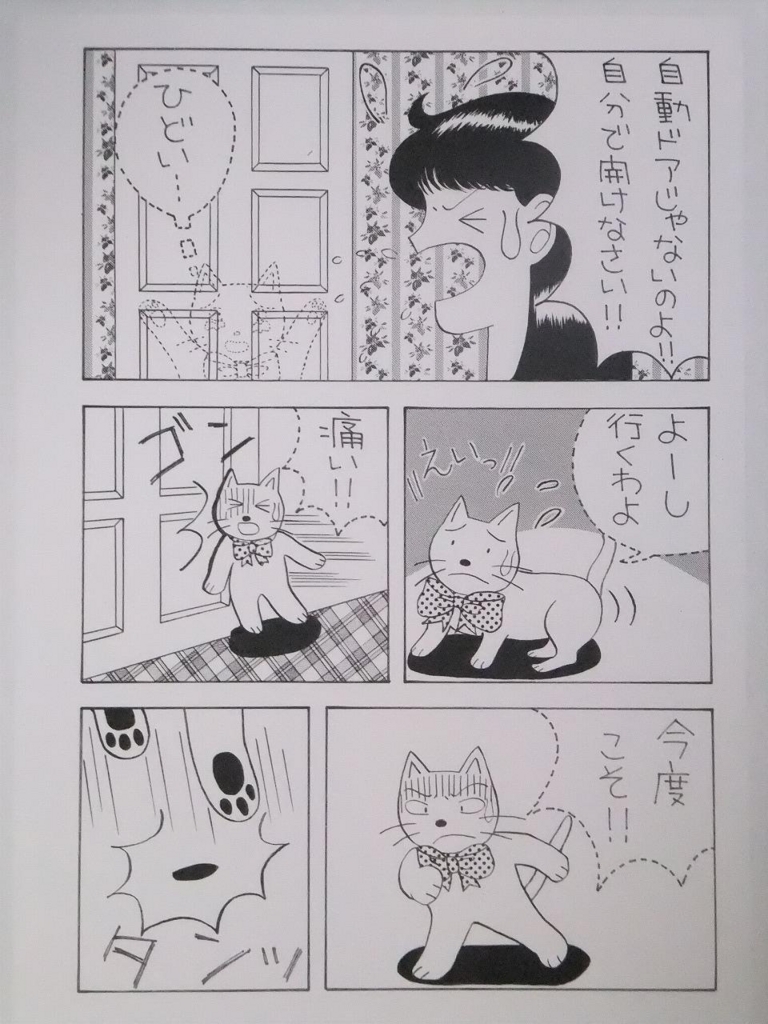 自動ドアじゃないのよ!!
自分で開けなさい!!
ひどい…
よーし
行くわよ
えいっ!!
痛い!!
ゴン
今度
こそ!!
タンッ